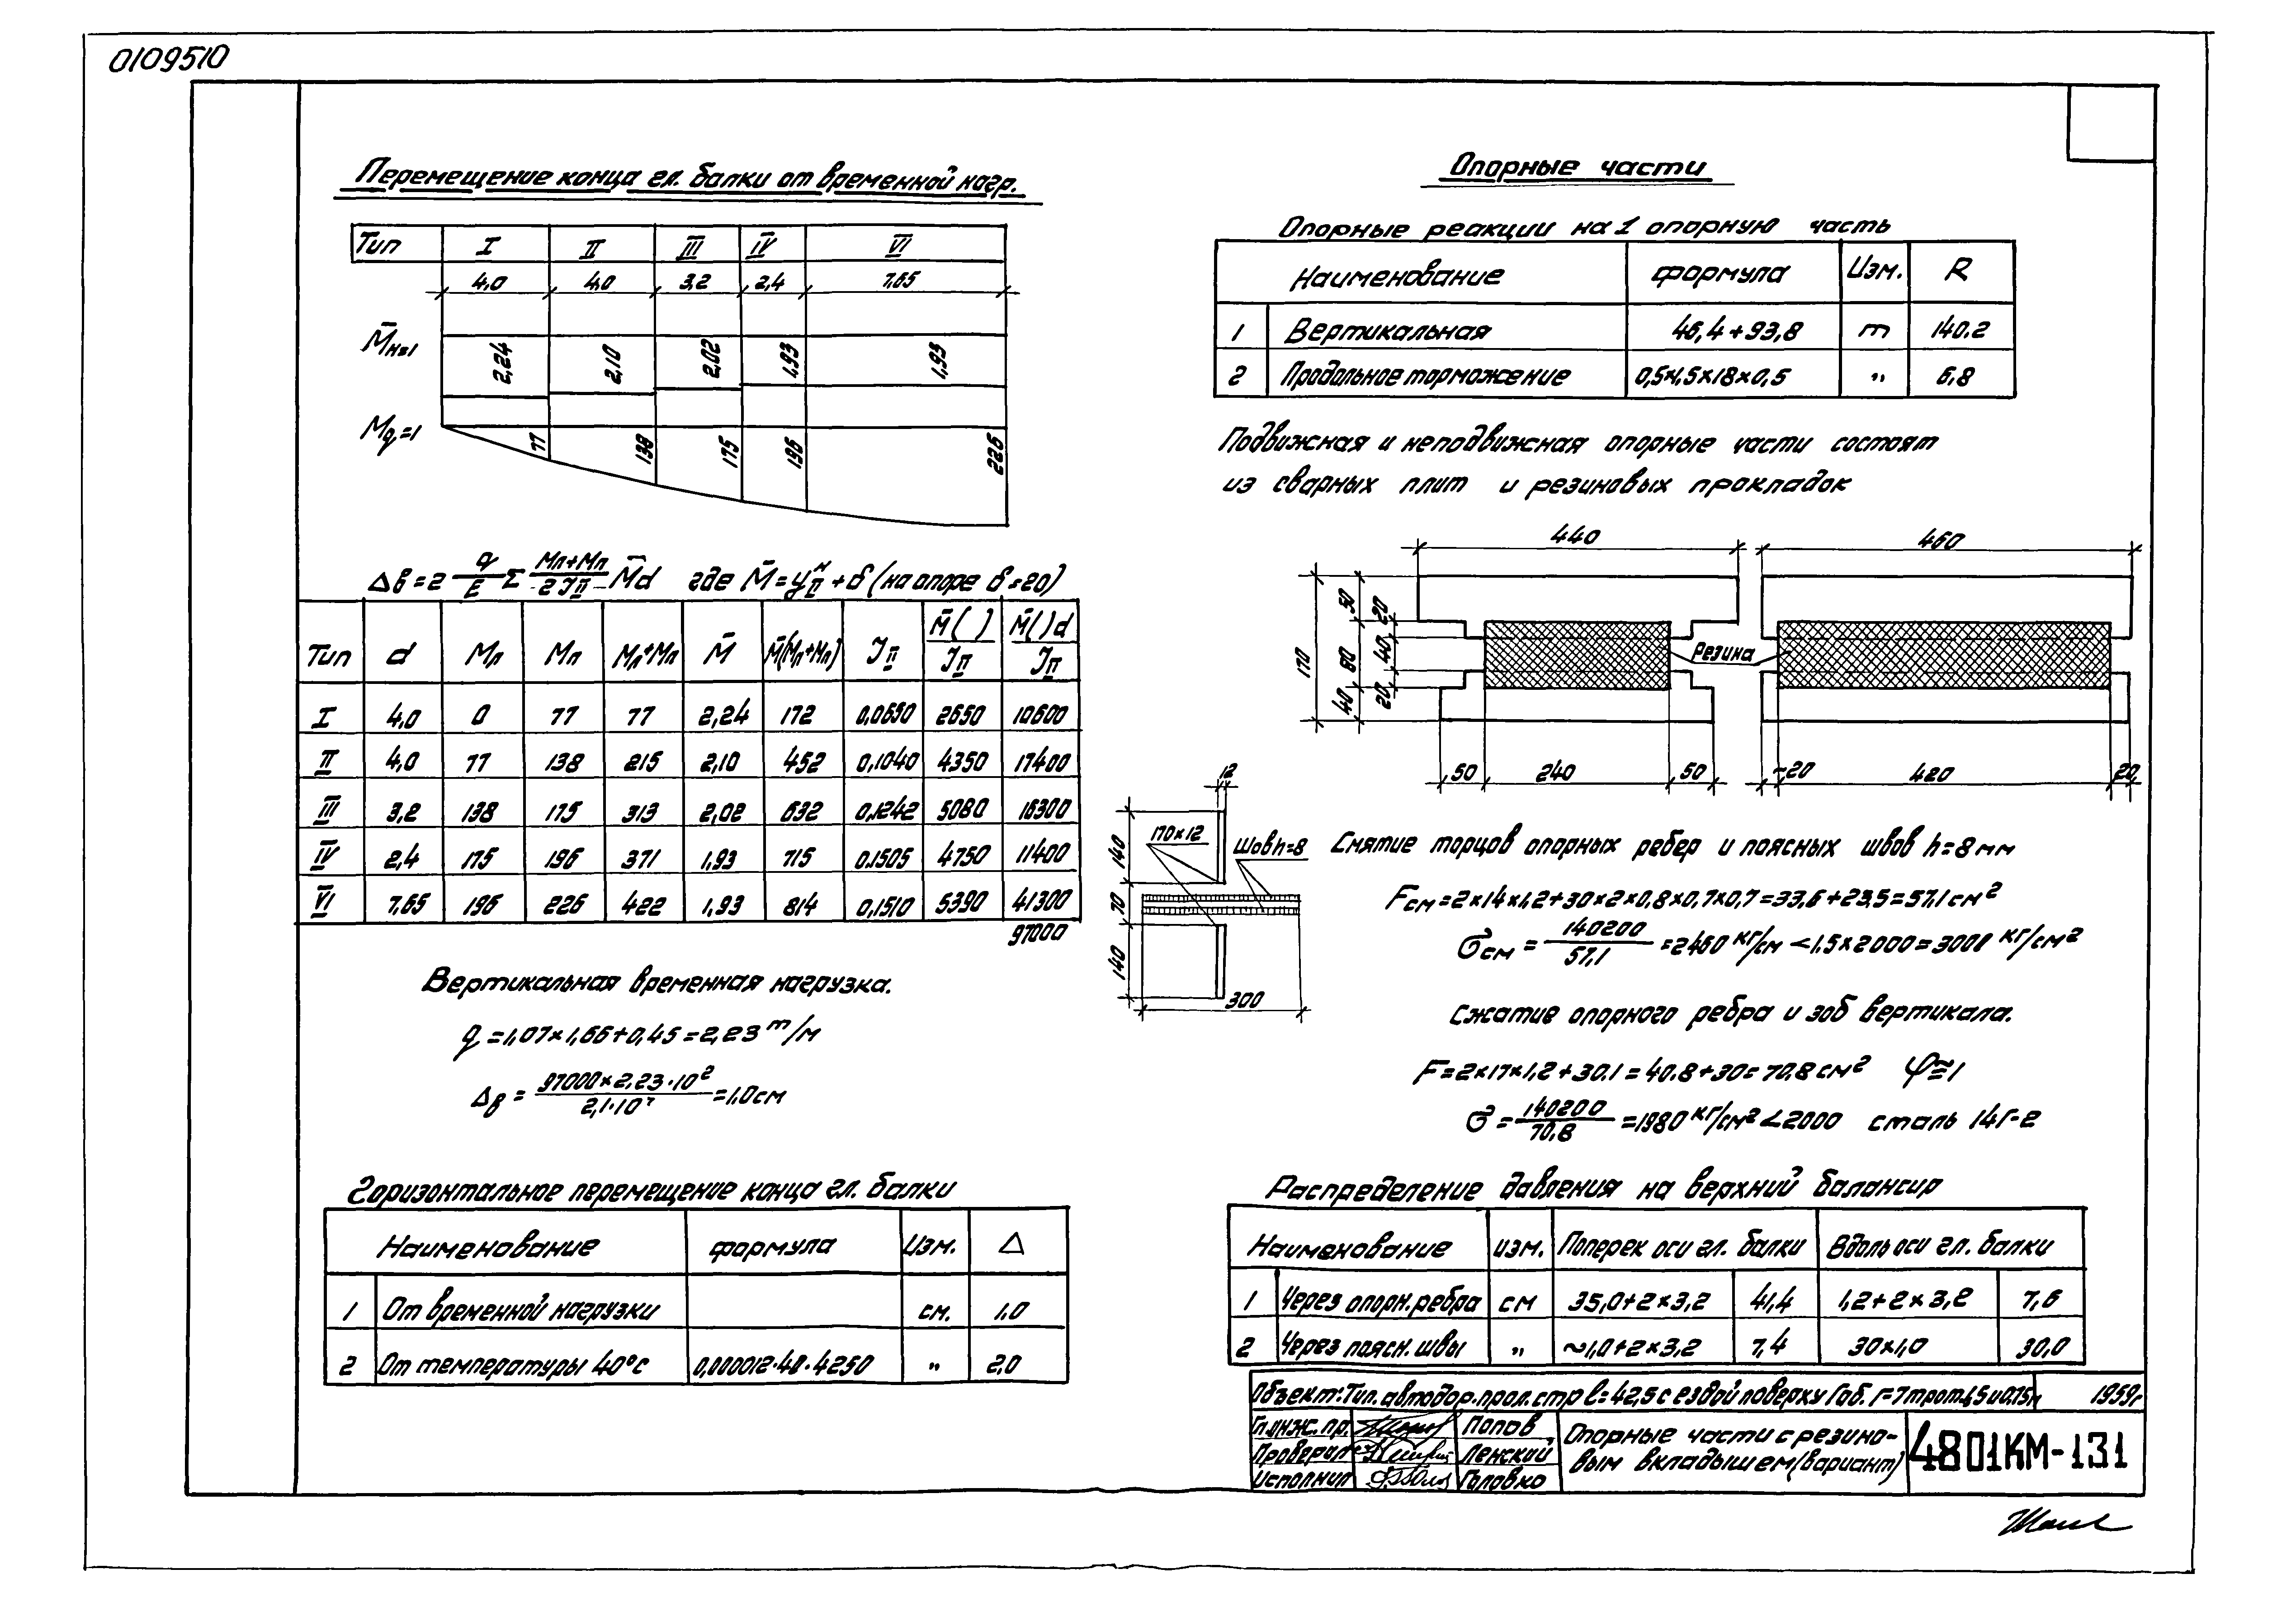 0109510
Перемещение конца гл. балки от временной нагр.
Тип I II III IV VI
4,0 4,0 3,2 2,4 7,65
M̄н=1 2,24 2,10 2,02 1,93 1,93
Mq=1 77 138 175 196 226
Δв=2 q/E Σ Мл+Мп/2Jп M̄d где M̄=yпн+δ (на опоре δ=20)
Тип d Мл Мп Мл+Мп M̄ M̄(Мл+Мп) Jп M̄( )/Jп M̄( )d/Jп
I 4,0 0 77 77 2,24 172 0,0650 2650 10600
II 4,0 77 138 215 2,10 452 0,1040 4350 17400
III 3,2 138 175 313 2,02 632 0,1242 5080 16300
IV 2,4 175 196 371 1,93 715 0.1505 4750 11400
VI 7,65 196 226 422 1,93 814 0,1510 5390 41300
97000
Вертикальная временная нагрузка.
q=1,07×1,66+0,45=2,23 т/м
Δв = 97000×2.23·10²/2,1·10⁷ =1,0см
Горизонтальное перемещение конца гл. балки
Наименование формула Изм. Δ
1 От временной нагрузки см. 1,0
2 От температуры 40°с 0,000012·40·4250 " 2,0
Опорные части
Опорные реакции на 1 опорную часть
Наименование формула Изм. R
1 Вертикальная 46,4+93,8 т 140.2
2 Продольное торможение 0,5×4,5×18×0,5 " 6,8
Подвижная и неподвижная опорные части состоят
из сварных плит и резиновых прокладок
440 460
170 50 80 40 20 40 20
Резина
50 240 50 ~20 420 20
12
140 70 140
170×12
Шов h=8
300
Смятие торцов опорных ребер и поясных швов h=8мм
Fсм=2×14×1,2+30×2×0,8×0,7×0,7=33,6+23,5=57,1см²
σсм = 140200/57,1 =2460 кг/см <1.5×2000=3000 кг/см²
Сжатие опорного ребра и зоб вертикала.
F=2×17×1,2+30.1=40.8+30=70,8см² φ≈1
σ=140200/70,8 =1980 кг/см²<2000 сталь 14Г-2
Распределение давления на верхний балансир
Наименование изм. Поперек оси гл. балки Вдоль оси гл. балки
1 Через опорн. ребра см 35,0+2×3,2 41,4 1,2+2×3,2 7,6
2 Через поясн. швы " ~1,0+2×3,2 7,4 30×1,0 30,0
Объект: Тип. автодор. прол. стр l=42,5 с ездой поверху Габ. Г=7 трот. 1,5 и 0.75м 1959г
Гл. инж. пр. Попов
Проверил Ленский
Исполнил Головко
Опорные части с резино-
вым вкладышем (вариант)
4801КМ-131